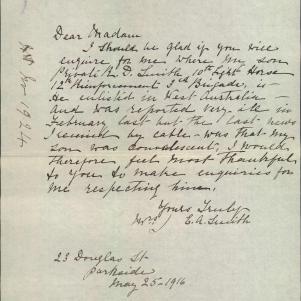 Dear Madam
I should be glad if you will
enquire for me where my son
Private R. D. Smith 10th Light Horse
12th Reinforcement 3rd Brigade, is -
He enlisted in West Australia -
and was reported very ill in
February last but the last news
I received by cable - was that my
son was convalescent, I would
therefore, feel most thankful
to you to make enquiries for
me respecting him.
Yours Truly
Mrs E. A. Smith
23 Douglas St
Parkside
May 25 - 1916
1924